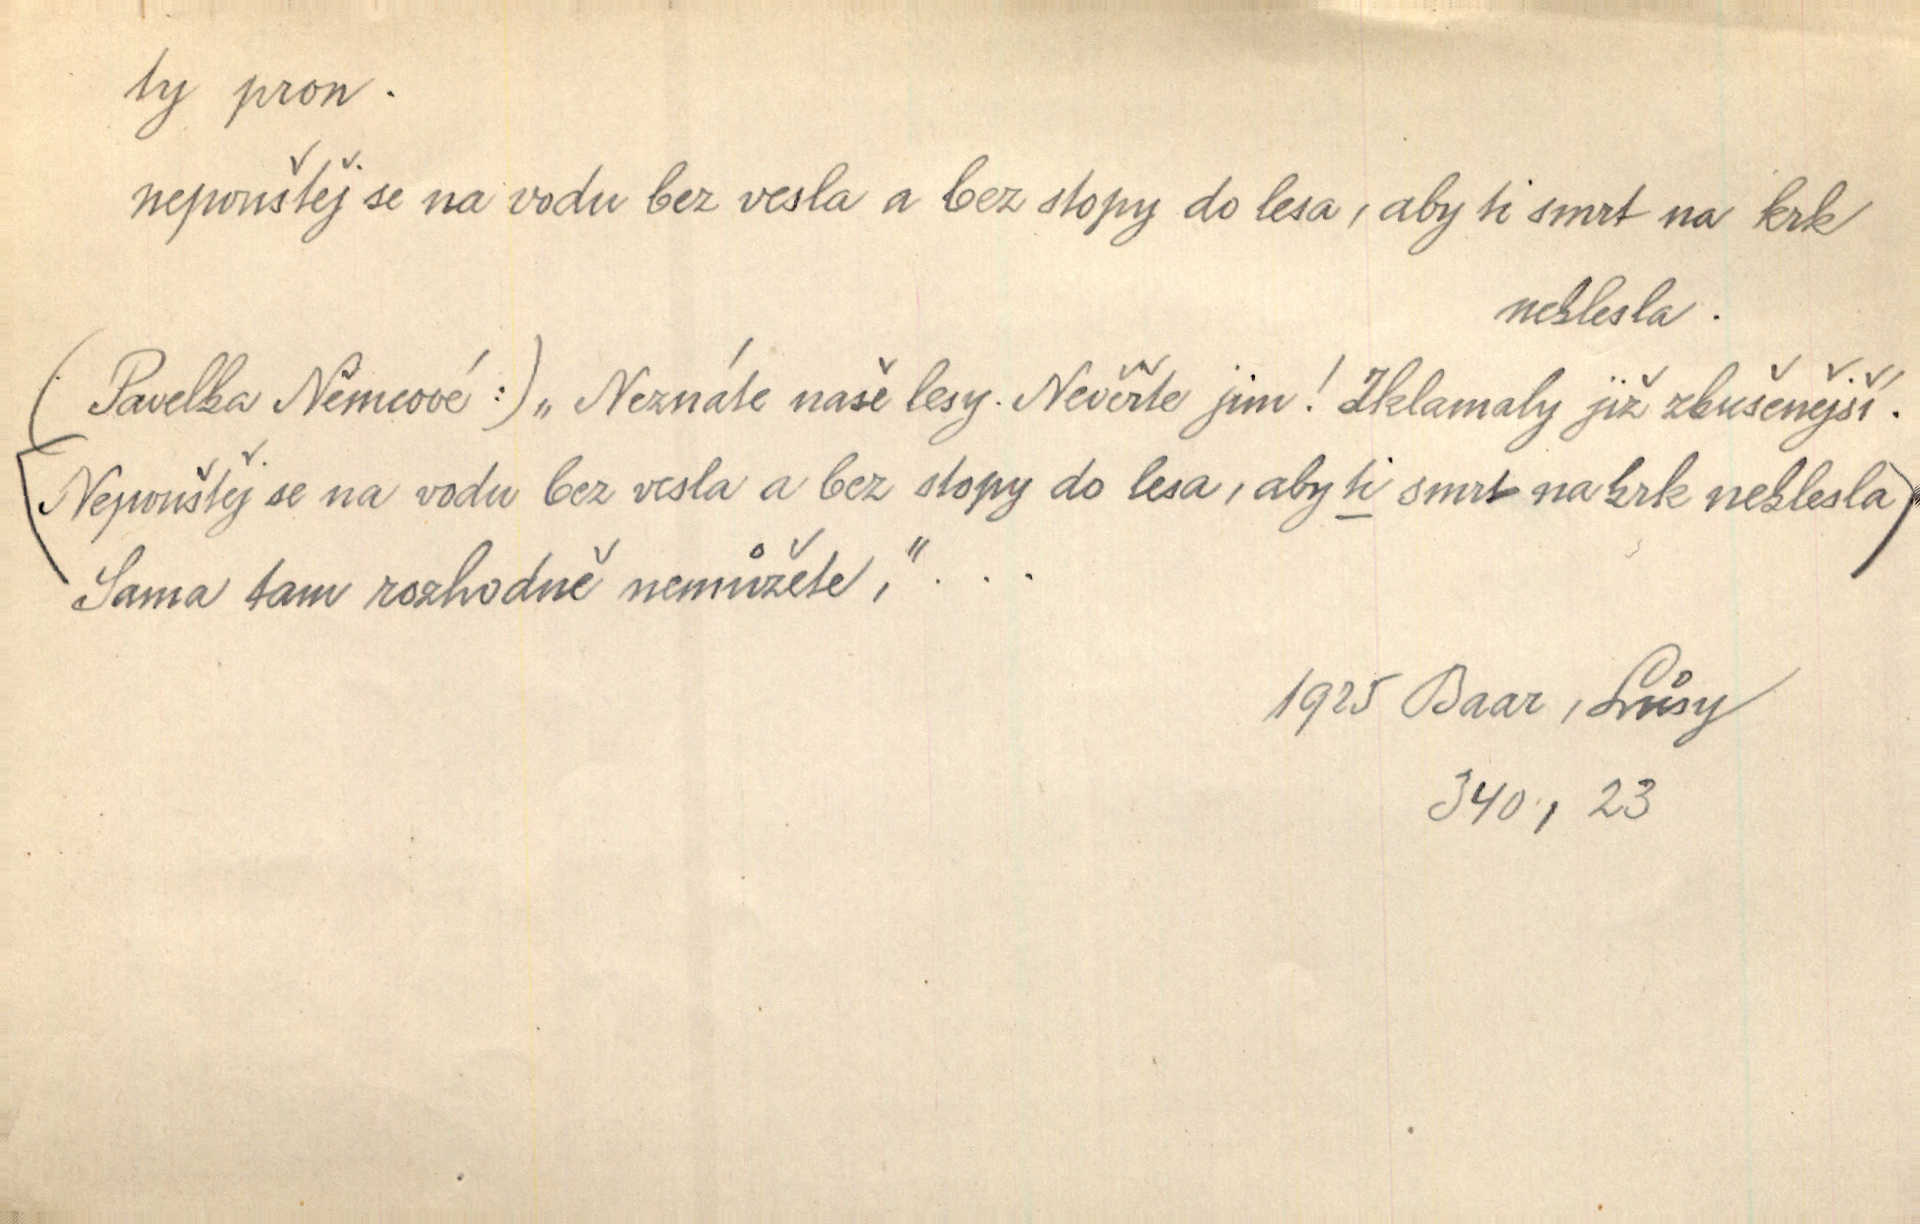 ty pron.
nepouštěj se na vodu bez vesla a bez stopy do lesa, aby ti smrt na krk
neklesla.
(Pavelka Němcové:) „Neznáte naše lesy. Nevěřte jim! Zklamaly již zkušenější.
(Nepouštěj se na vodu bez vesla a bez stopy do lesa, aby ti smrt na krk neklesla)
Sama tam rozhodně nemůžete,“...
1925 Baar, Lůsy
340, 23